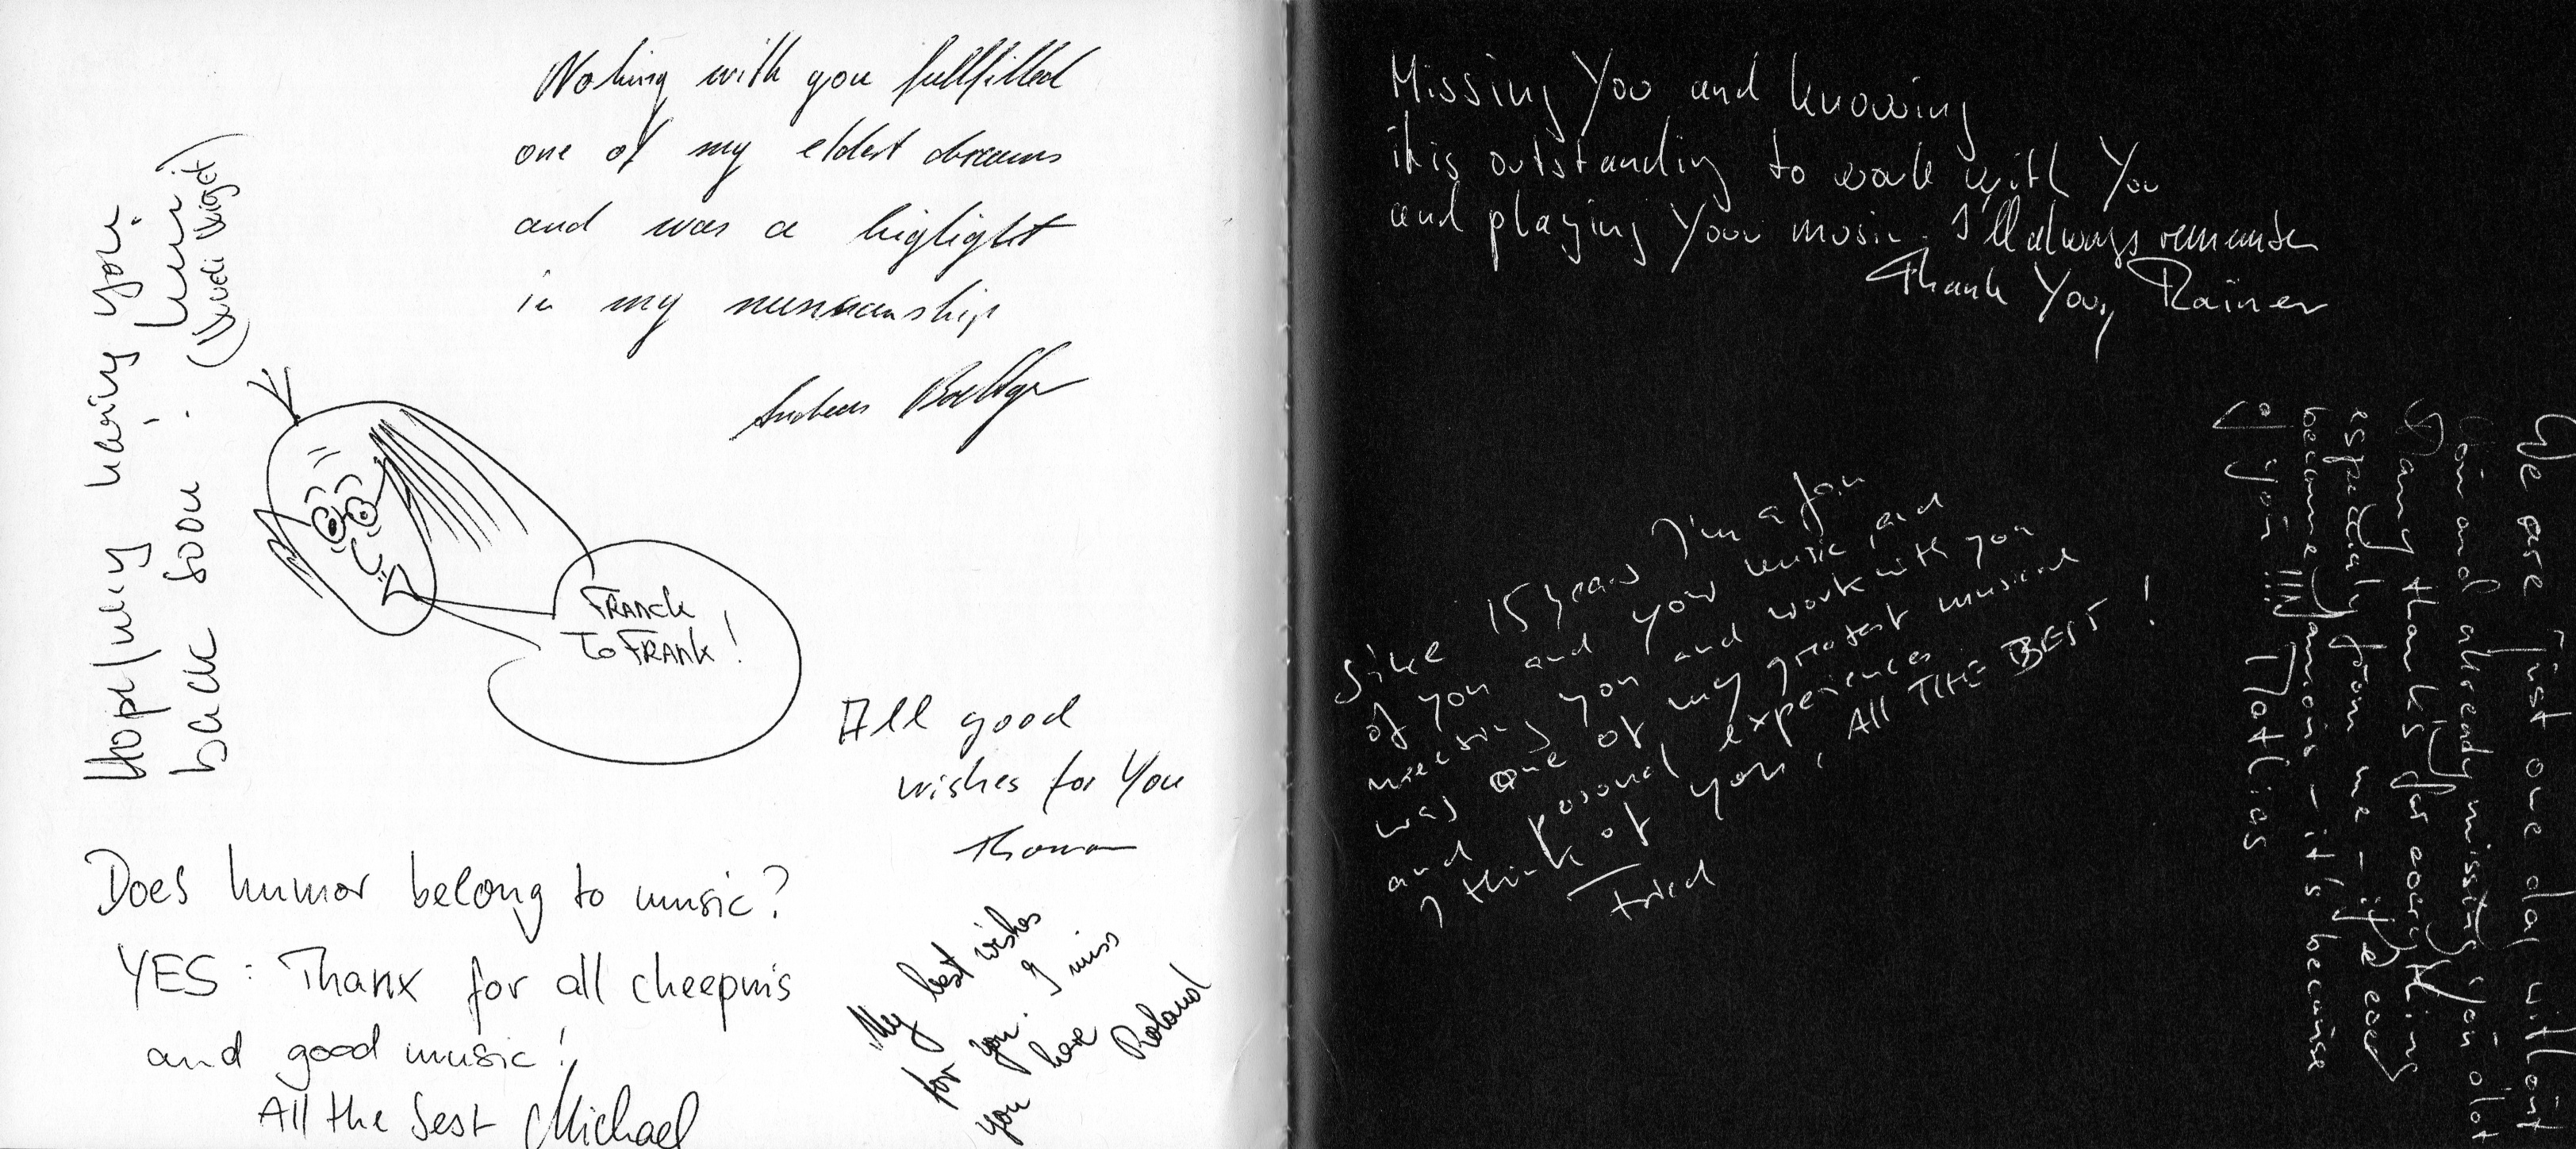 Hopefully having you
back soon !
(Ueli Wiget)
Woking with you fullfilled
one of my eldest dreams
and was a higlight
in my
Andreas Boettger
FRANCK
TO FRANK!
All good
wishes for You
Thomas
Does humor belong to music?
YES : Thanx for all cheepnis
and good music!
All the best Michael
My best wishes
for you. I miss
you here
Roland
Missing You and knowing
it is outstanding to work with You
and playing Your music. I'll always remember
Thank You, Rainer
Since 15 years I'm a fan
of you and your music and
meeting you and work with you
was one of my greatest musical
and personal experiences
I think of you, All THE BEST !
Fried
We are just one day without
you and already missing you alot
Many thanks for everything
especially from me - if I ever
become famous - it's because
of you !!! Mathias